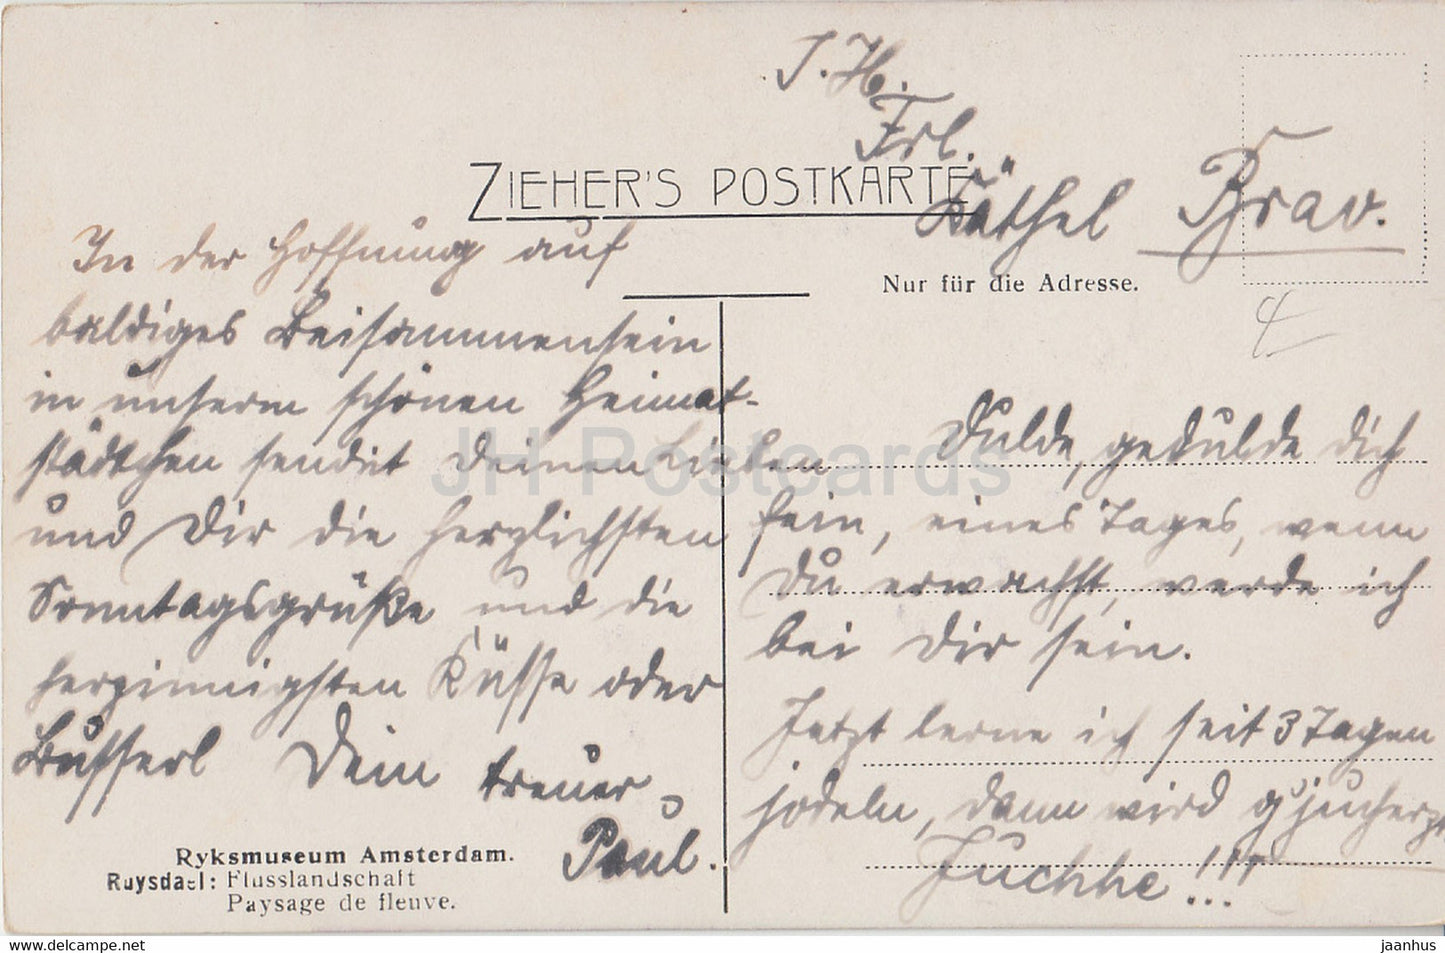 J. H.
Frl.
Käthel Brav.
ZIEHER'S POSTKARTE
Nur für die Adresse.
4
In der Hoffnung auf
baldiges Beisammensein
in unserm schönen Heimat-
städtchen sendet Deinen Lieben
und Dir die herzlichsten
Sonntagsgrüße und die
herzinnigsten Küsse oder
Busserl Dein treuer
Paul.
Dulde, gedulde dich
fein, eines Tages, wenn
Du erwachst, werde ich
bei Dir sein.
Jetzt lerne ich seit 3 Tagen
jodeln, dann wird g'jucherzt
Juchhe!!!
Ryksmuseum Amsterdam.
Ruysdael: Flusslandschaft
Paysage de fleuve.
JH Postcards
www.delcampe.net
jaanhus